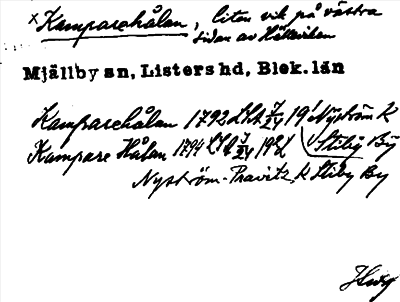 x Kamparehålan, liten vik på västra
sidan av Hälleviken
Mjällby sn, Listers hd, Blek. län
Kamparehålan 1792 LSt 7/24 19¹ Nyström K
Stiby By
Kampare Hålan 1794 LSt 7/24 19
Nyström-Pravitz, K Stiby By